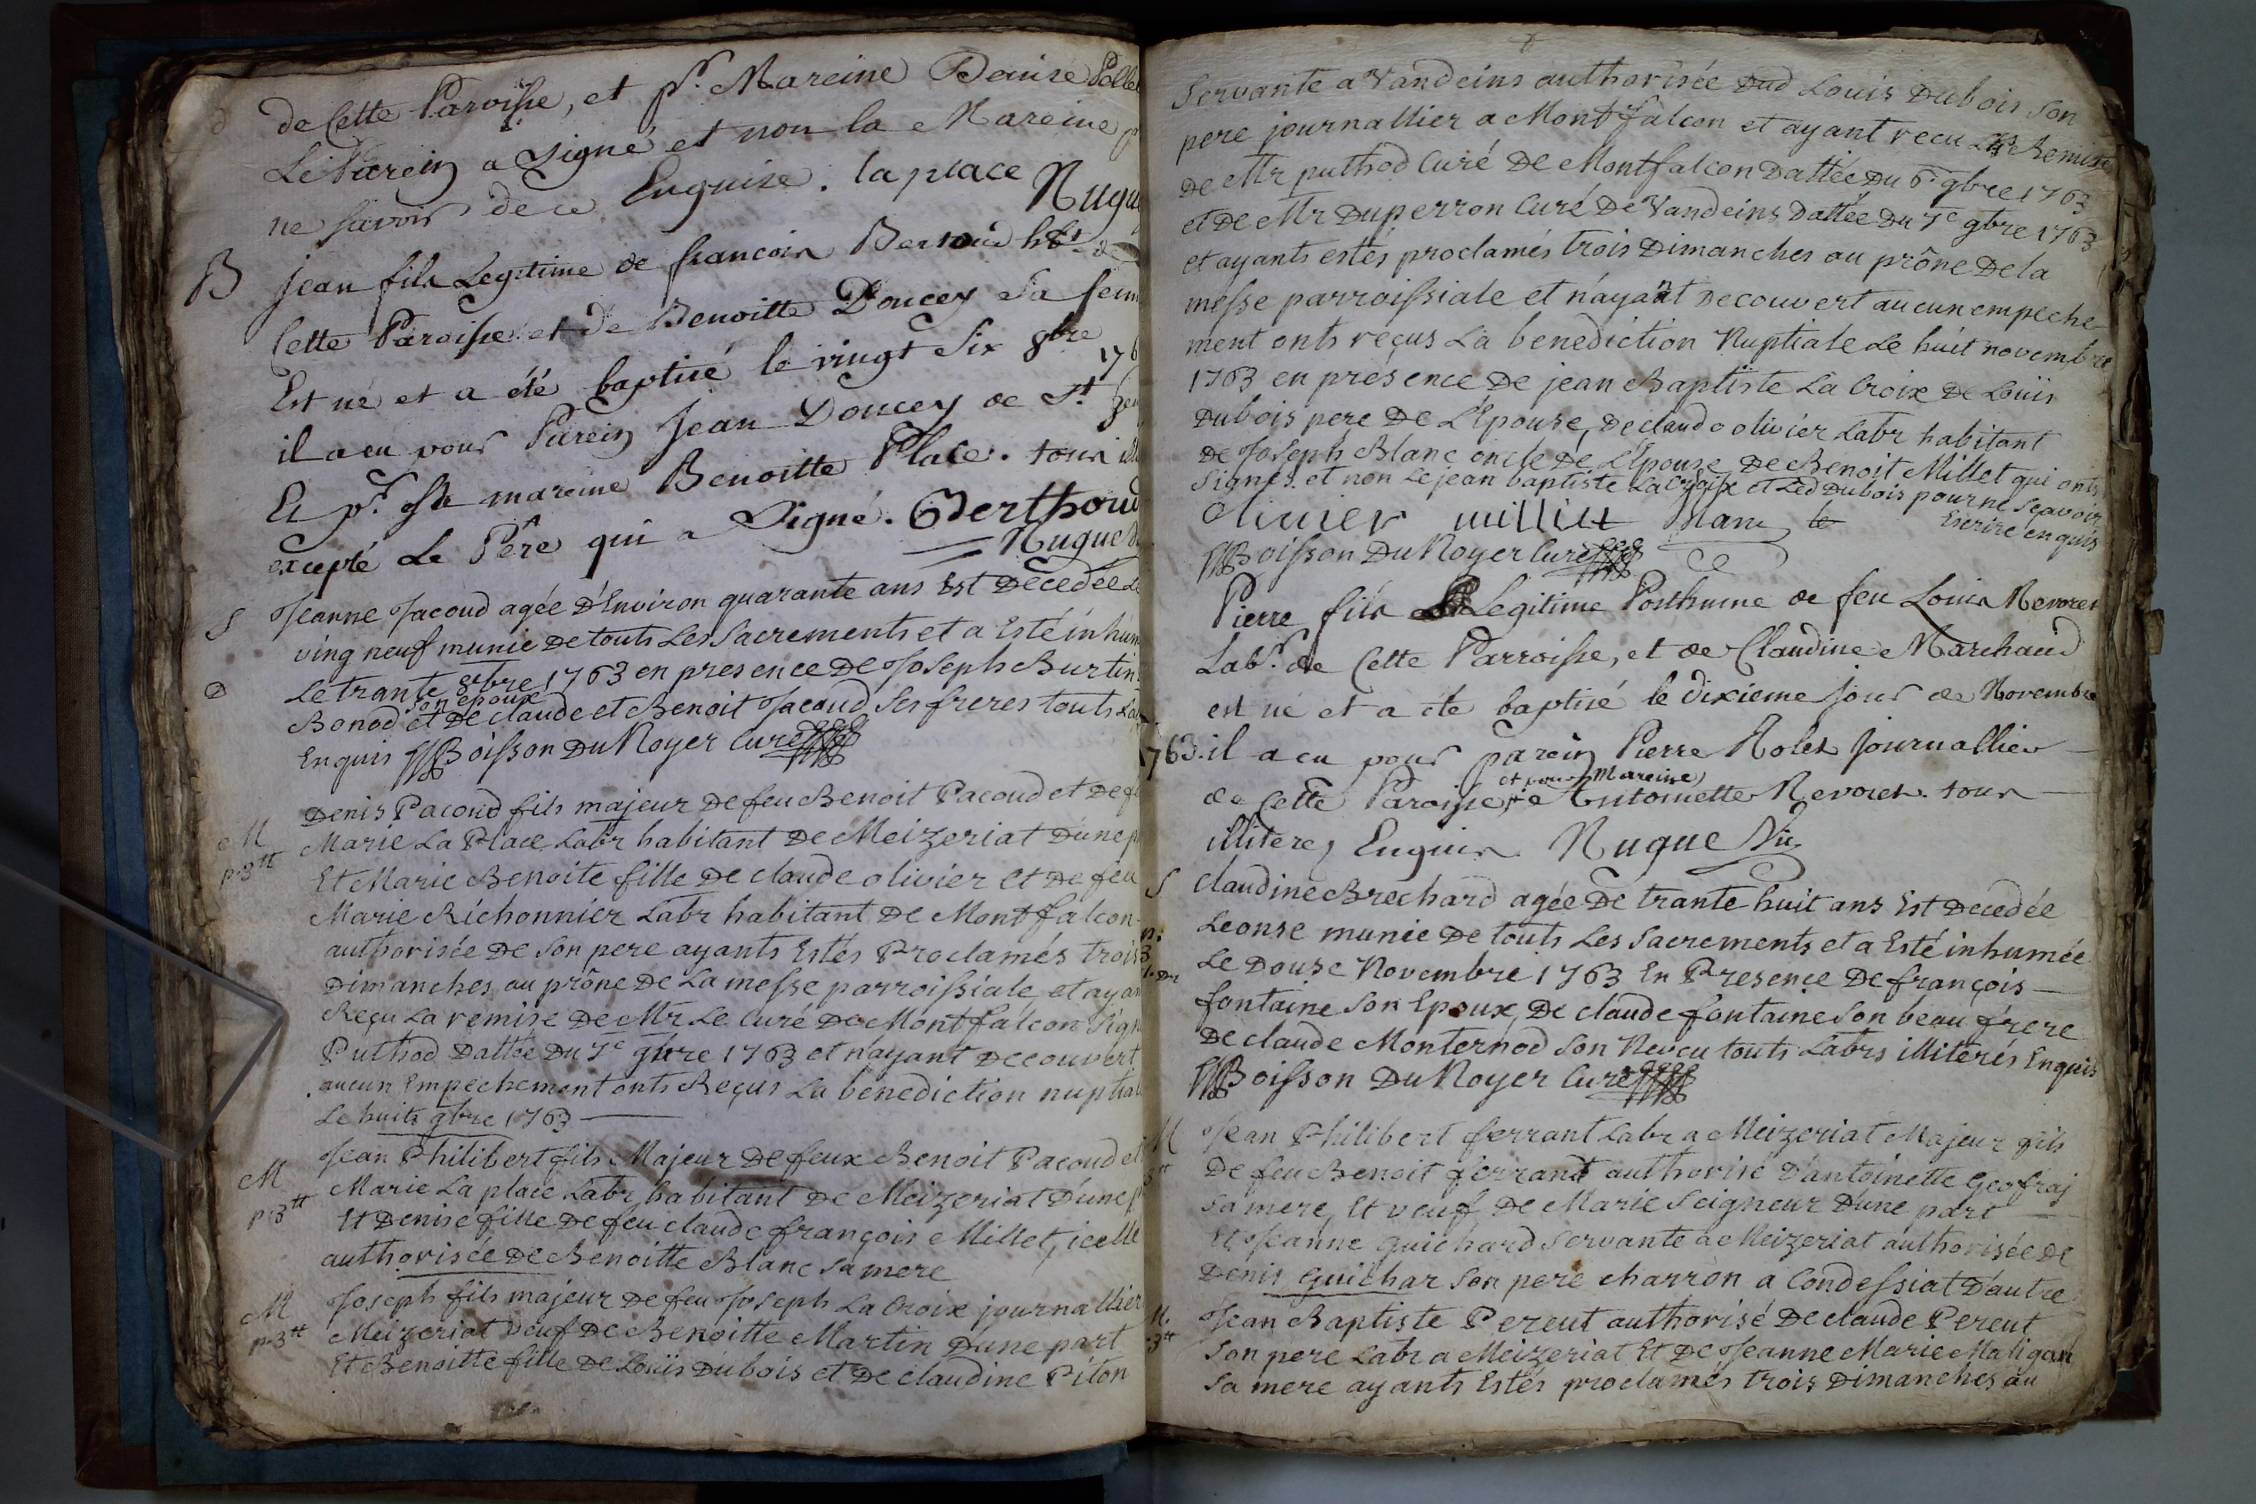 de Cette Paroisse, et pr. Mareine Denise
Le Parein a Signé et non la Mareine
ne savoir de ce Enquise. laplace Nugue
B
jean fils Legitime de francois hbt. de
Cette Paroisse et de Benoitte Doucey Sa fem
Est né et a été baptisé le vingt Six 8bre 176
il a eu pour Parein Jean Doucey de St.
Et pr. Sa mareine Benoitte Place. tous
excepté Le Pere qui a Signé. Berthoud
Nugue
S
Jeanne Jacoud agée D'Environ quarante ans Est Decedée Le
ving neuf munie De touts Les Sacrements et a Esté inhum
D
Le trante 8bre 1763 en presence De Joseph Burtin
son epoux
Bonod et De claude et Benoit Jacoud Ses freres touts La
Enquis Boisson Du Noyer Curé
Denis Pacoud fils majeur De feu Benoit Pacoud et De f
M
p. 3tt
Marie La Place Labr habitant De Meizeriat D'une p
Et Marie Benoite fille De claude olivier et De feu
Marie Richonnier Labr habitant De Montfalcon
authorisée De Son pere ayants Estés Proclamés trois
Dimanches au prône De La messe parroissiale et ayan
Reçu La remise De Mr Le Curé De Montfalcon Sign
Puthod Dattée Du 7e 9bre 1763 et n'ayant Decouvert
aucun Empechement onts Reçus La benediction nuptial
Le huits 9bre 1763
M
p. 3tt
Jean Philibert fils Majeur De feux Benoit Pacoud et
Marie La place Labr habitant De Meizeriat D'une p
Et Denise fille De feu claude françois Millet, icelle
authorisée De Benoitte Blanc Sa mere
M
p. 3tt
Joseph fils majeur De feu Joseph La Croix journallier
Meizeriat veuf De Benoitte Martin D'une part
Et Benoitte fille De Loüis Dubois et De claudine Piton
Servante a Vandeins authorisée Dud Louis Dubois Son
pere journallier a Montfalcon et ayant recu La Remise
De Mr puthod Curé De Montfalcon Dattée Du 6. 9bre 1763
et De Mr Duperron Curé De Vandeins Dattée Du 7e 9bre 1763
et ayants estés proclamés trois Dimanches au prône De la
messe parroissiale et n'ayant Decouvert aucun empeche
ment onts reçus La benediction Nuptiale Le huit novembre
1763 en presence De jean Baptiste La Croix De Loüis
Dubois pere De L'Epouse, De claude olivier Labr habitant
De Joseph Blanc oncle De L'Epouse De Benoit Millet qui onts
Signés. et non Le jean baptiste La Croix et Led Dubois pour ne Sçavoir
Escrire enquis
Olivier millet
Boisson Du Noyer Curé
Pierre fils Legitime Posthume de feu Louis Revoret
Labr. de Cette Parroisse, et de Claudine Marchand
est né et a éte baptisé le dixieme jour de Novembre
1763. il a eu pour parein Pierre Rolet Journallier
et pour Mareine
de cette Paroisse, Antoinette Revoret. tous
illiteres Enquis. Nugue Vic.
S
Claudine Brechard agée De trante huit ans Est Decedée
Le onse munie De touts Les Sacrements et a Esté inhumée
Le Douse Novembre 1763 En Presence De françois
fontaine Son Epoux, De claude fontaine Son beau frere
De claude Monternod Son Neveu touts Labrs illiterés Enquis
Boisson Du Noyer Curé
M
3tt
Jean Philibert ferrant Labr a Meizeriat Majeur fils
De feu Benoit ferrant authorisé D'antoinette Geofraj
Sa mere, Et veuf De Marie Seigneur D'une part
Et Jeanne Guichard Servante a Meizeriat authorisée De
Denis Guichar Son pere charron a Condessiat D'autre
M.
3tt
Jean Baptiste Pereut authorisé De claude Pereut
Son pere Labr a Meizeriat Et De Jeanne Marie Maligan
Sa mere ayants Estés proclamés trois Dimanches au